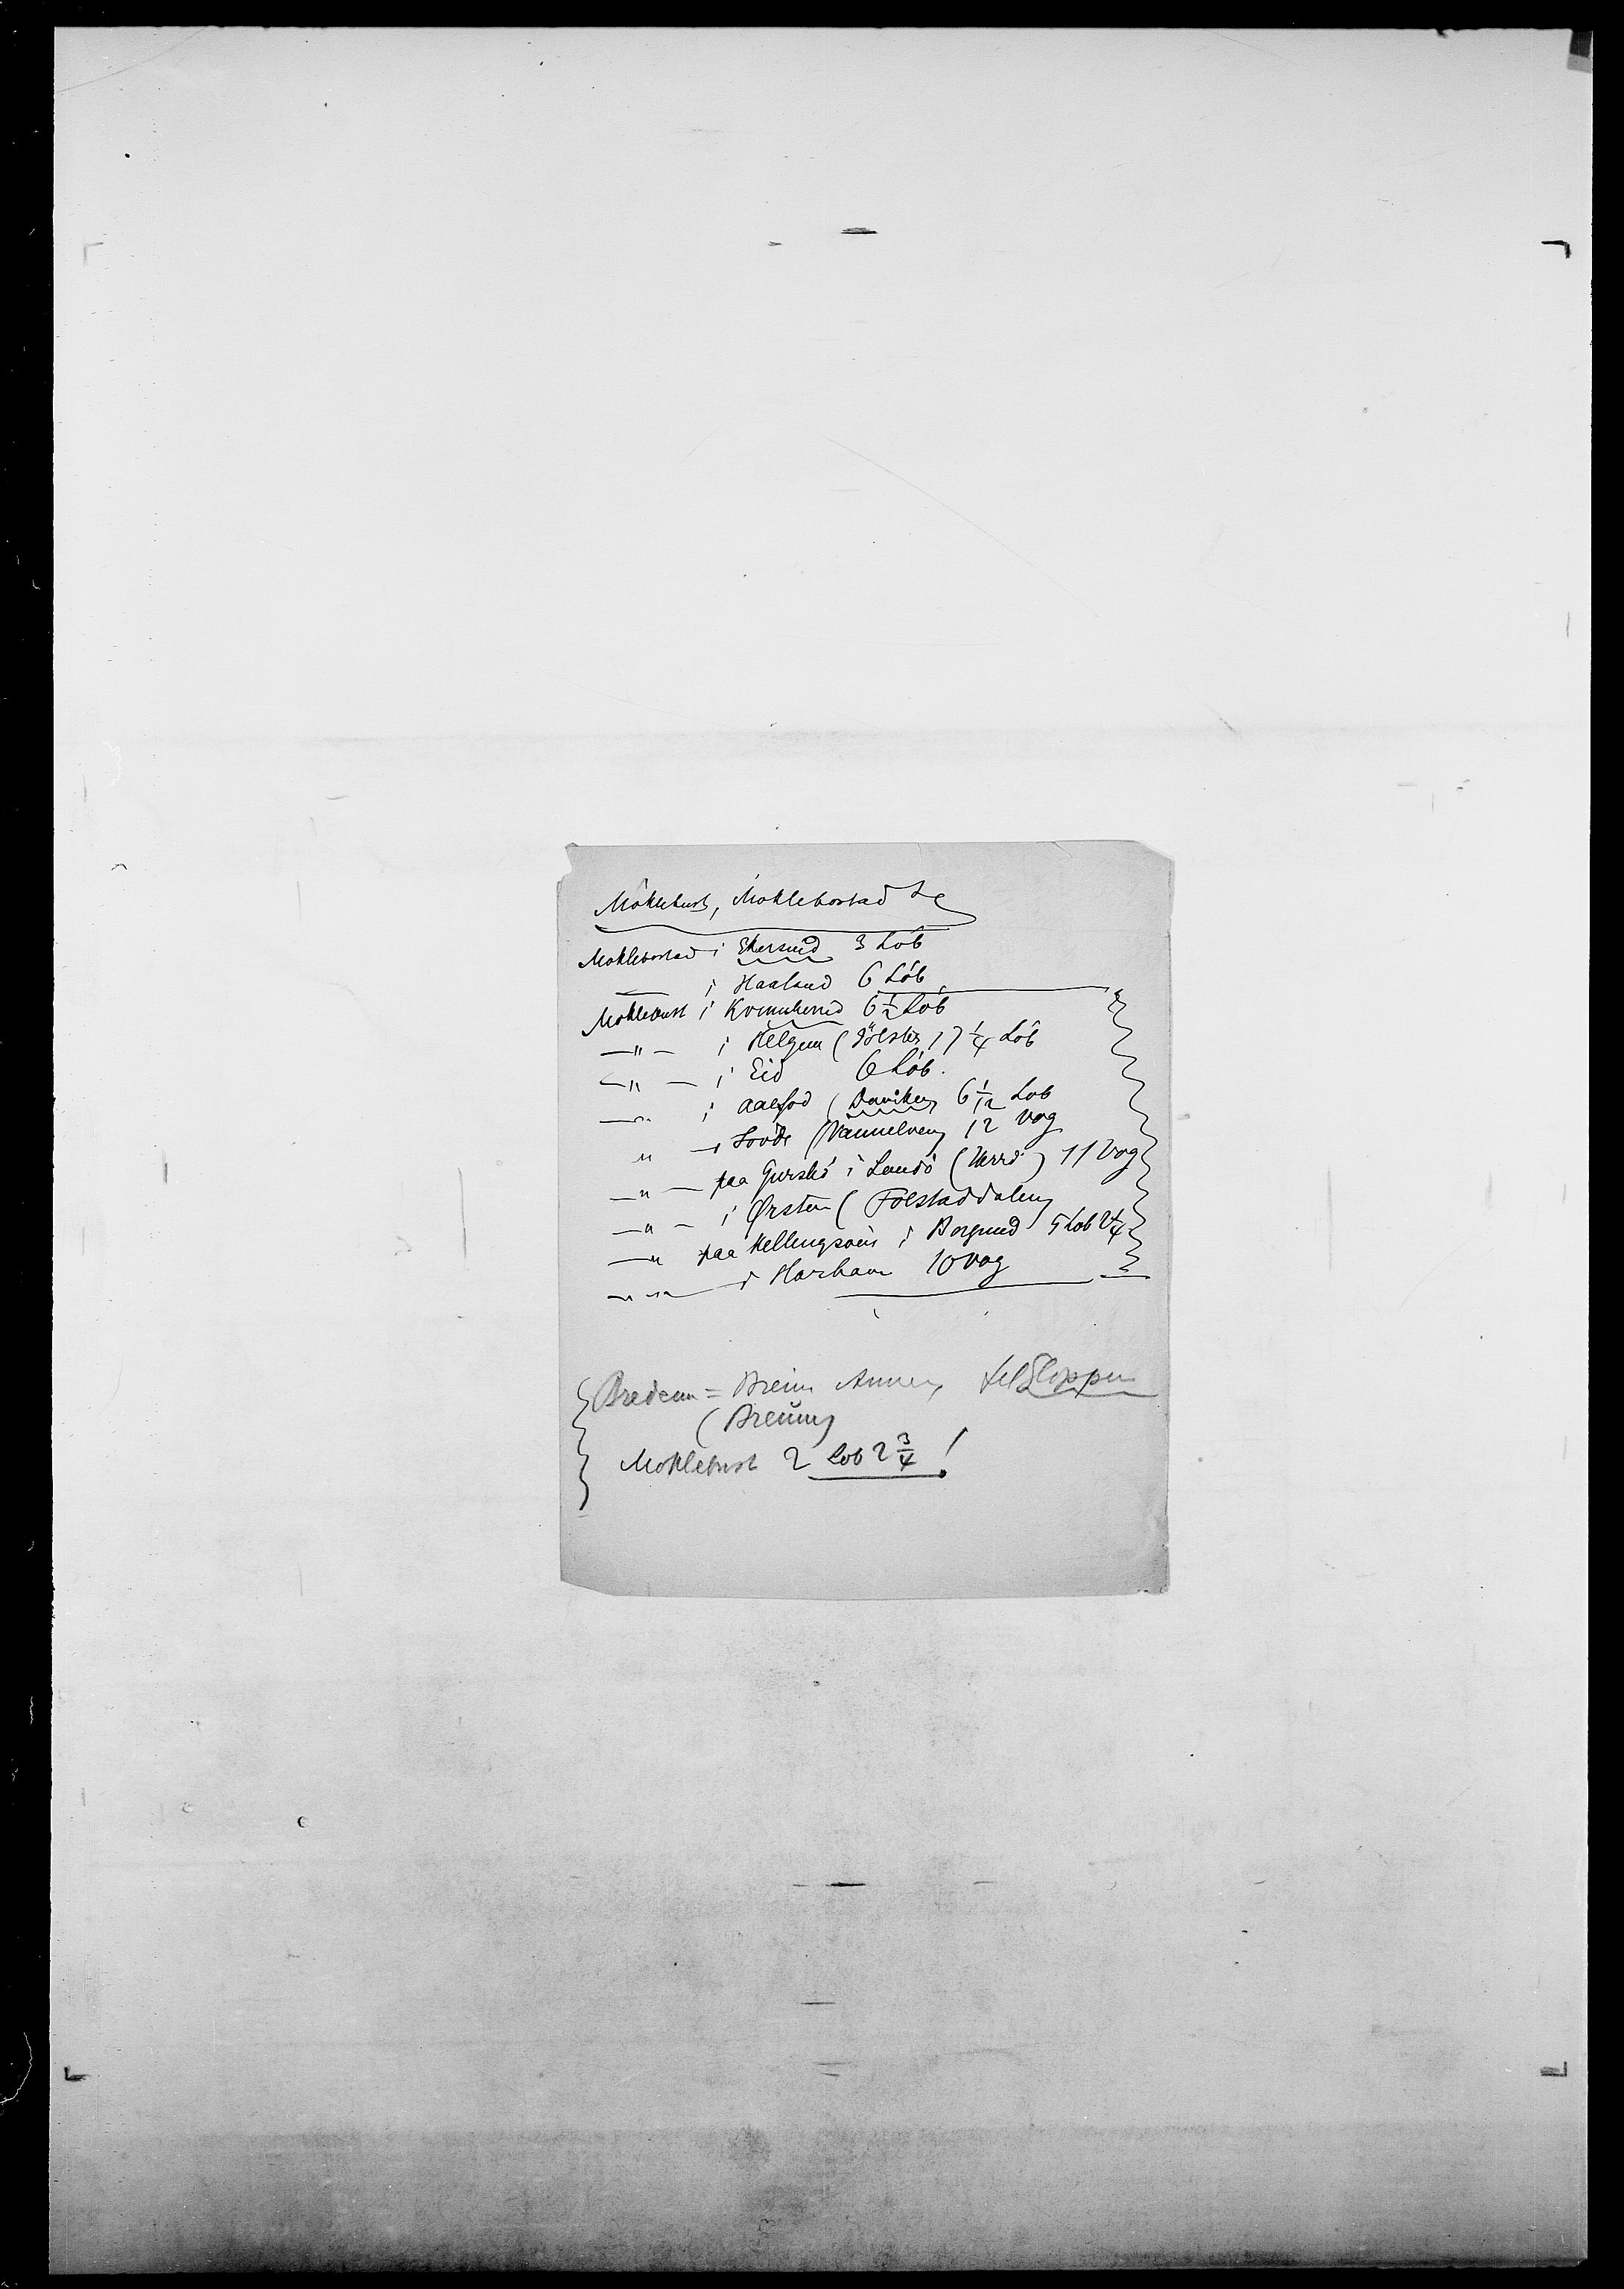 Möklebust, Moklebostad
Moklebostad i Ekersund 3 Löb
— i Haaland 6 Löb
Moklebust i Kvinnherred 6 1/2 Löb
—"— i Helgem (Jölster) 7 1/4 Löb
—"— i Eid 6 Löb.
—"— i Aalfod (Daviken) 6 1/12 Lob
" — i Sovde (Vannelven) 12 Vog
—"— paa Gurskö i Sandö (Herrö) 11 Vog
—"— i Ørsten (Folstaddalen)
—" paa Hellingsöen i Borgund 5 Lob 2 1/4
—"— i Harham 10 vog
Bredem = Breim Annex til Gloppen
(Breim)
Moklebust 2 Lob 2 3/4 !